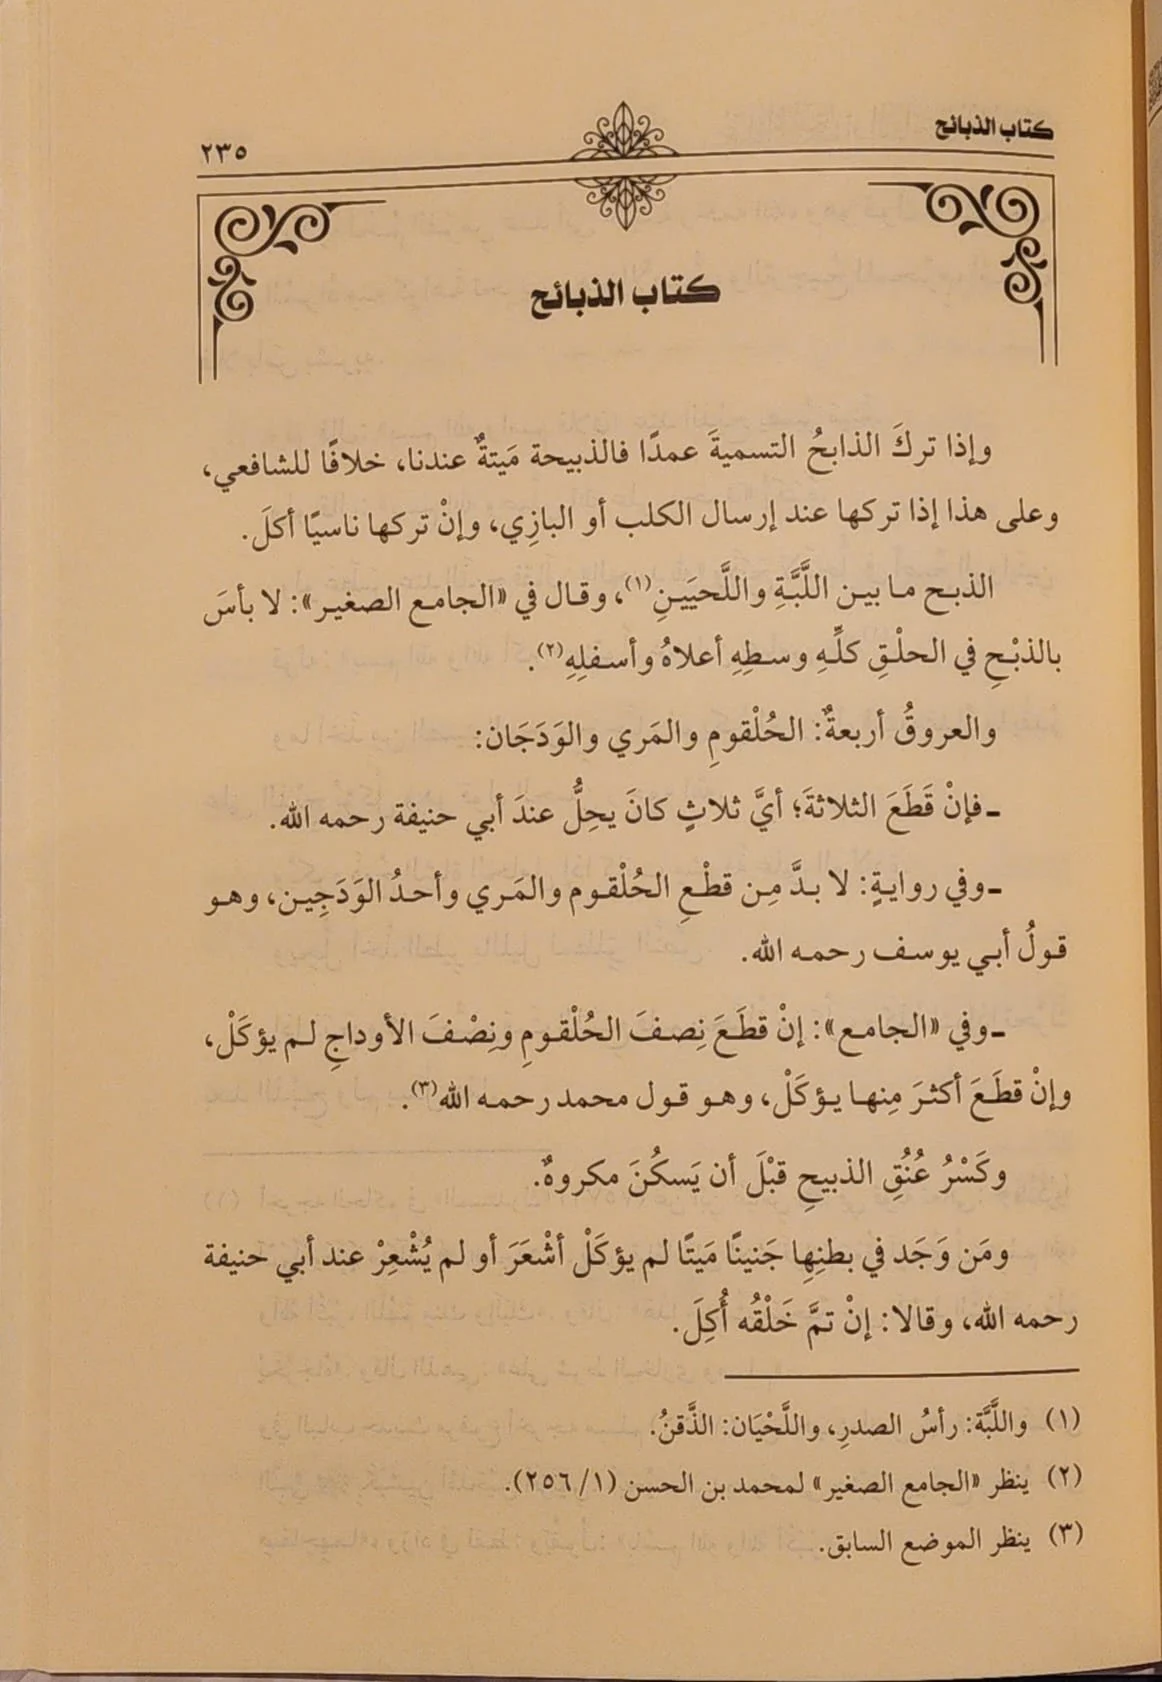 كتاب الذبائح
٢٣٥
كتاب الذبائح
وإذا تركَ الذابحُ التسميةَ عمدًا فالذبيحة مَيتةٌ عندنا، خلافًا للشافعي،
وعلى هذا إذا تركها عند إرسال الكلب أو البازِي، وإنْ تركها ناسيًا أكلَ.
الذبح ما بين اللَّبَّةِ واللَّحيَينِ(١)، وقال في «الجامع الصغير»: لا بأسَ
بالذبْحِ في الحلْقِ كلِّهِ وسطِهِ أعلاهُ وأسفلِهِ(٢).
والعروقُ أربعةٌ: الحُلْقومِ والمَري والوَدَجَان:
ـ فإنْ قَطَعَ الثلاثةَ؛ أيَّ ثلاثٍ كانَ يحِلُّ عندَ أبي حنيفة رحمه الله.
ـ وفي روايةٍ: لا بدَّ مِن قطْعِ الحُلْقوم والمَري وأحدُ الوَدَجِين، وهو
قولُ أبي يوسف رحمه الله.
ـ وفي «الجامع»: إنْ قطَعَ نِصفَ الحُلْقومِ ونِصْفَ الأوداجِ لم يؤكَلْ،
وإنْ قطَعَ أكثرَ مِنها يؤكَلْ، وهو قول محمد رحمه الله(٣).
وكَسْرُ عُنُقِ الذبيحِ قبْلَ أن يَسكُنَ مكروهٌ.
ومَن وَجَد في بطنِها جَنينًا مَيتًا لم يؤكَلْ أشْعَرَ أو لم يُشْعِرْ عند أبي حنيفة
رحمه الله، وقالا: إنْ تمَّ خَلْقُه أُكِلَ.
(١) واللَّبَّة: رأسُ الصدرِ، واللَّحْيَان: الذَّقنُ.
(٢) ينظر «الجامع الصغير» لمحمد بن الحسن (١/ ٢٥٦).
(٣) ينظر الموضع السابق.